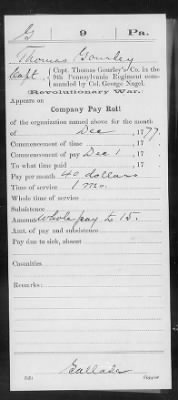 G 9 Pa.
Thomas Gourley
Capt., Capt. Thomas Gourley's Co. in the
9th Pennsylvania Regiment com-
manded by Col. George Nagel.
(Revolutionary War.)
Appears on
Company Pay Roll
of the organization named above for the month
of Dec, 1777.
Commencement of time , 17 .
Commencement of pay Dec 1 , 17 .
To what time paid , 17 .
Pay per month 40 dollars
Time of service 1 mo.
Whole time of service
Subsistence
Amount whole pay to 15.
Amt. of pay and subsistence
Pay due to sick, absent
Casualties
Remarks:
Copyist.